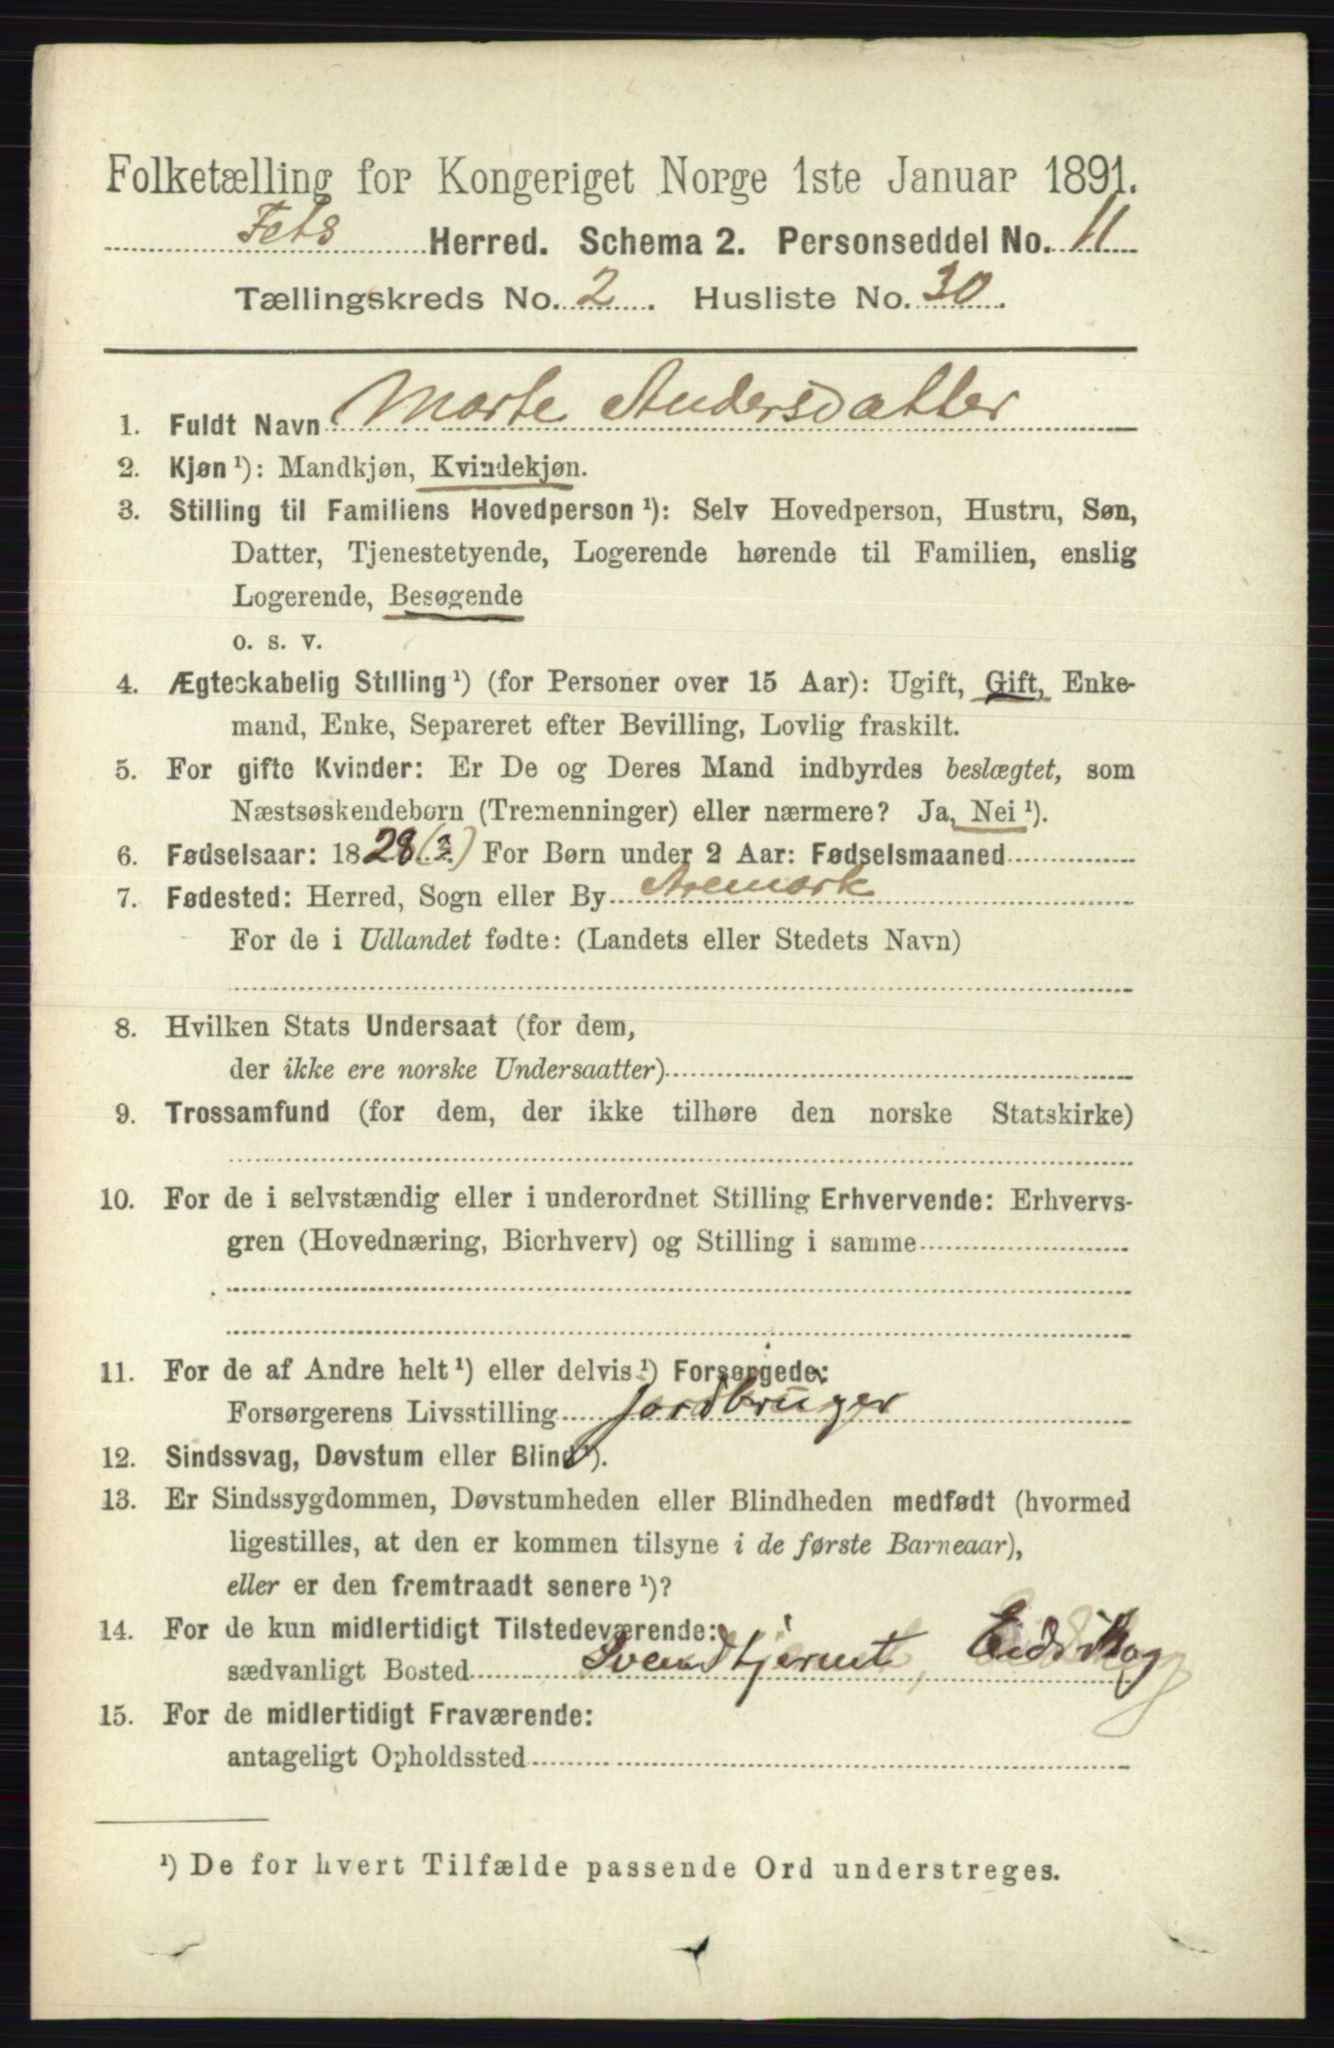 Folketælling for Kongeriget Norge 1ste Januar 1891.
Fets Herred. Schema 2. Personseddel No. 11
Tællingskreds No. 2. Husliste No. 30.
1. Fuldt Navn Marte Andersdatter
2. Kjøn ¹): Mandkjøn, Kvindekjøn.
3. Stilling til Familiens Hovedperson ¹): Selv Hovedperson, Hustru, Søn,
Datter, Tjenestetyende, Logerende hørende til Familien, enslig
Logerende, Besøgende
o. s. v.
4. Ægteskabelig Stilling ¹) (for Personer over 15 Aar): Ugift, Gift, Enke-
mand, Enke, Separeret efter Bevilling, Lovlig fraskilt.
5. For gifte Kvinder: Er De og Deres Mand indbyrdes beslægtet, som
Næstsøskendebørn (Tremenninger) eller nærmere? Ja, Nei ¹).
6. Fødselsaar: 1828 (?) For Børn under 2 Aar: Fødselsmaaned
7. Fødested: Herred, Sogn eller By Aremark
For de i Udlandet fødte: (Landets eller Stedets Navn)
8. Hvilken Stats Undersaat (for dem,
der ikke ere norske Undersaatter)
9. Trossamfund (for dem, der ikke tilhøre den norske Statskirke)
10. For de i selvstændig eller i underordnet Stilling Erhvervende: Erhvervs-
gren (Hovednæring, Bierhverv) og Stilling i samme
11. For de af Andre helt ¹) eller delvis ¹) Forsørgede:
Forsørgerens Livsstilling Jordbruger
12. Sindssvag, Døvstum eller Blind ¹).
13. Er Sindssygdommen, Døvstumheden eller Blindheden medfødt (hvormed
ligestilles, at den er kommen tilsyne i de første Barneaar),
eller er den fremtraadt senere ¹)?
14. For de kun midlertidigt Tilstedeværende:
sædvanligt Bosted Svendtjernet, Eidskog
15. For de midlertidigt Fraværende:
antageligt Opholdssted
¹) De for hvert Tilfælde passende Ord understreges.